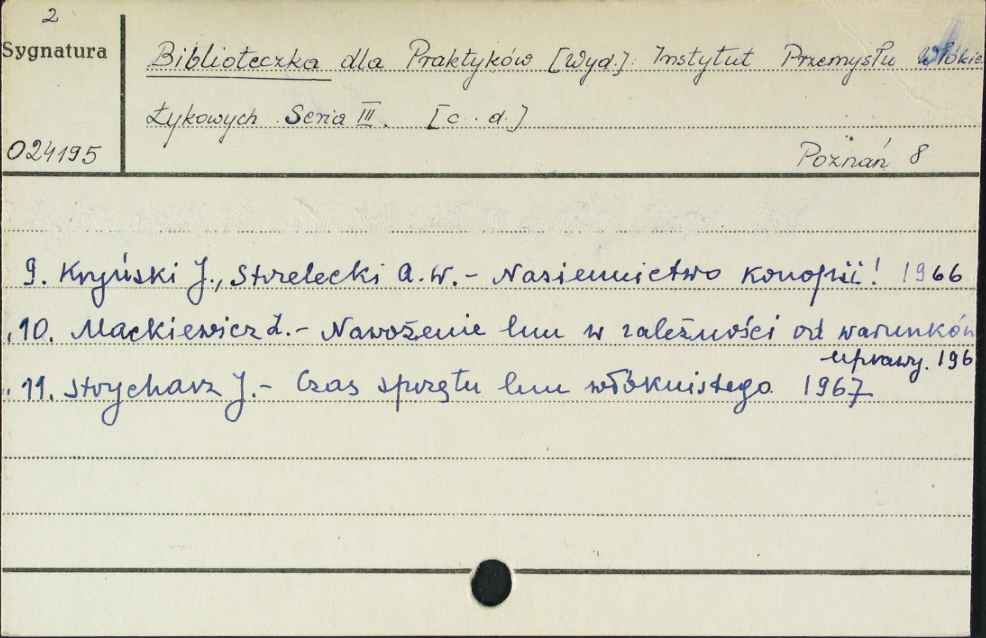 2
Sygnatura
Biblioteczka dla Praktyków [Wyd.] Instytut Przemysłu Włókie
Łykowych Seria III. [c.d.]
024195
Poznań 8
9. Kryński J., Strzelecki A.W. - Nasiennictwo konopii! 1966
10. Mackiewicz Ł. - Nawożenie lnu w zależności od warunków
uprawy. 196
11. Strycharz J. - Czas sprzętu lnu włóknistego. 1967